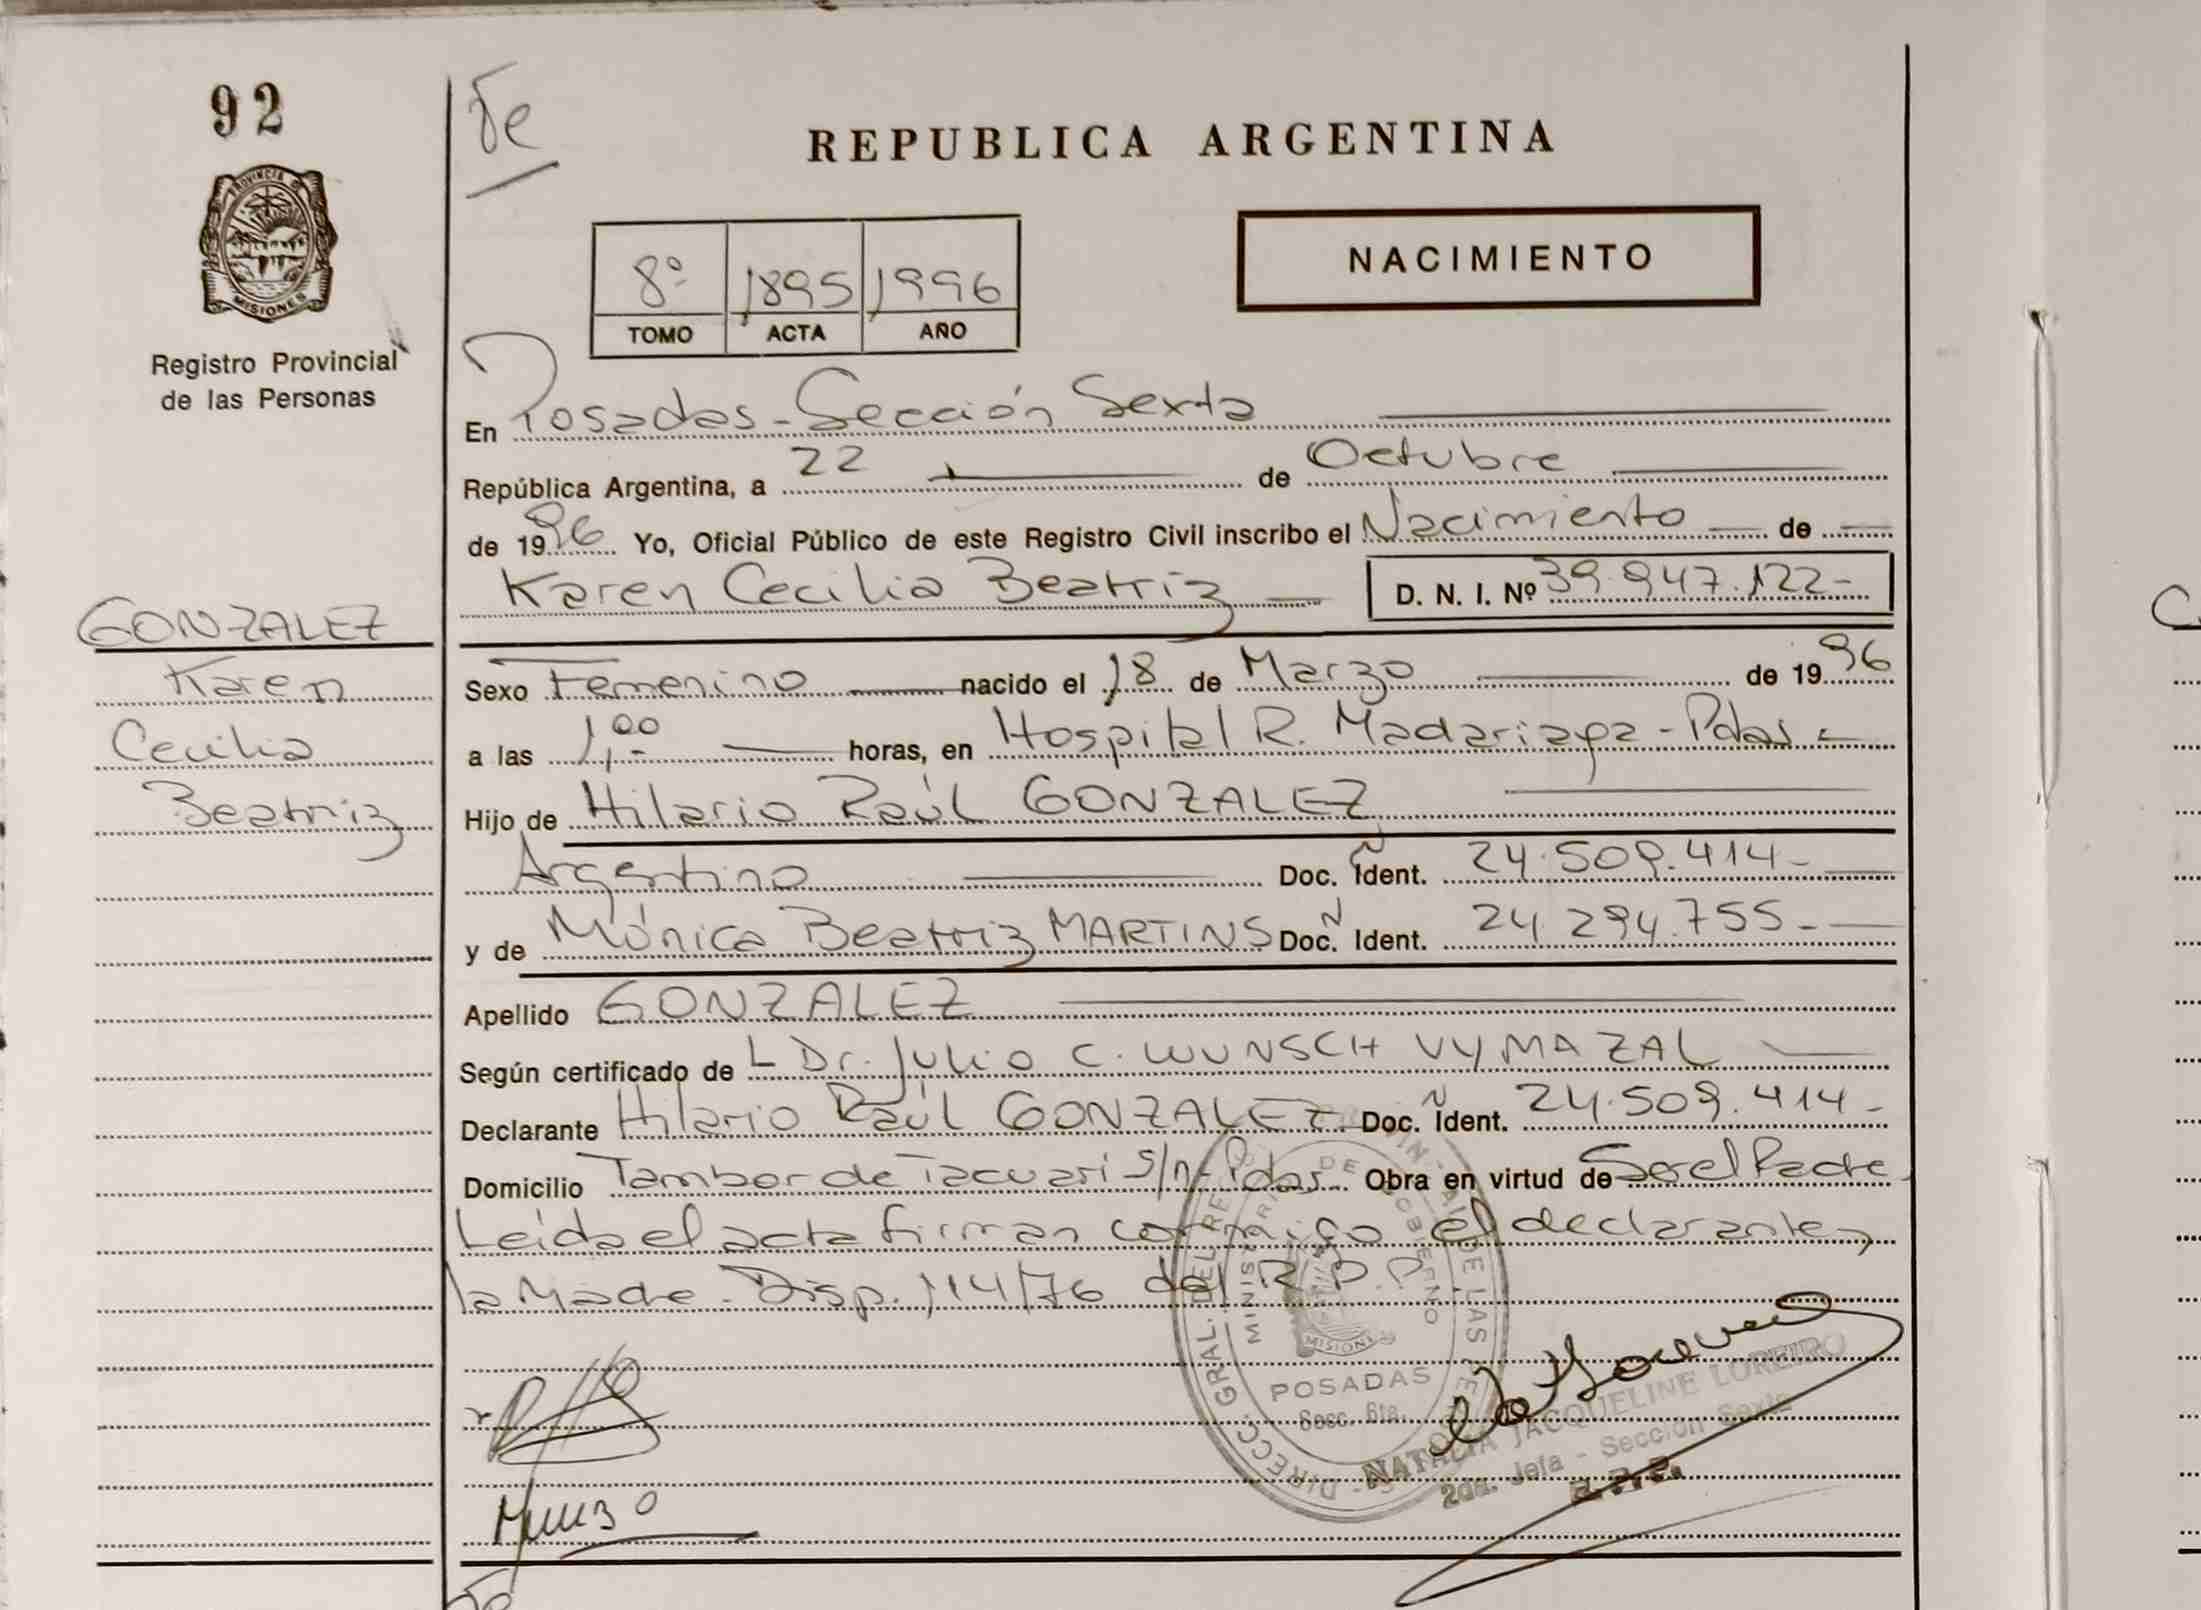 92
PROVINCIA D
MISIONES
Registro Provincial
de las Personas
REPUBLICA ARGENTINA
NACIMIENTO
8º 1895 1996
TOMO ACTA AÑO
En Posadas - Sección Sexta
República Argentina, a 22 de Octubre
de 1996 Yo, Oficial Público de este Registro Civil inscribo el Nacimiento de
Karen Cecilia Beatriz D. N. I. Nº 39.947.122-
GONZALEZ
Karen
Cecilia
Beatriz
Sexo Femenino nacido el 18 de Marzo de 1996
a las 1,00 horas, en Hospital R. Madariaga - Pdas -
Hijo de Hilario Raúl GONZALEZ
Argentino Doc. Ident. 24.509.414-
y de Mónica Beatriz MARTINS Doc. Ident. 24.294.755-
Apellido GONZALEZ
Según certificado de L Dr. Julio C. WUNSCH VYMAZAL
Declarante Hilario Raúl GONZALEZ Doc. Ident. 24.509.414-
Domicilio Tambor de Tacuarí S/n - Pdas. Obra en virtud de Ser el Padre
Leída el acta firman conmigo el declarante y
la Madre - Disp. 114/76 del R.P.P.
DIRECC. GRAL. DEL DE LAS
MINISTERIO DE GOBIERNO
MISIONES
POSADAS
Secc. 6ta.
NATALIA JACQUELINE LOREIRO
2da. Jefa - Sección Sexta
R.P.P.